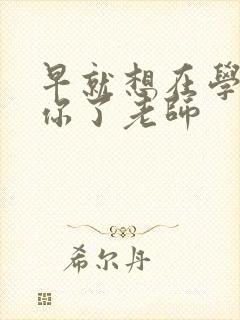 早就想在學
你了老師
希尔丹